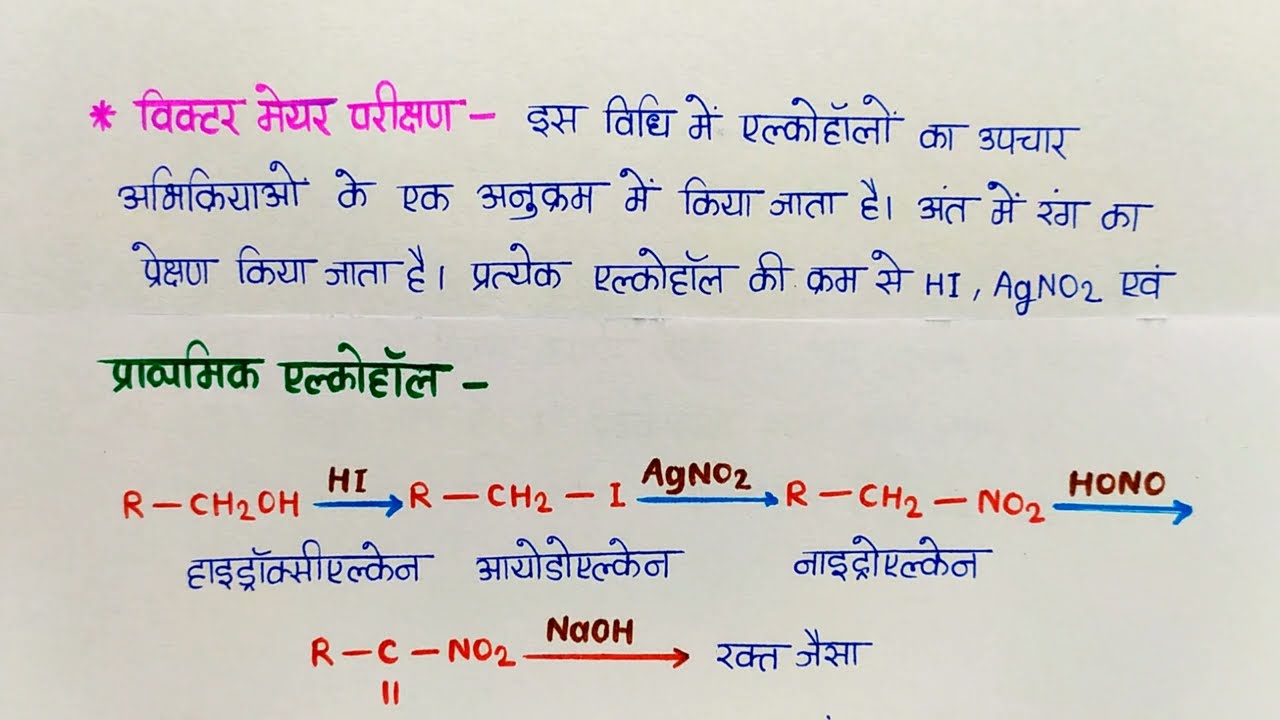 * विक्टर मेयर परीक्षण – इस विधि में एल्कोहॉलों का उपचार
अभिक्रियाओं के एक अनुक्रम में किया जाता है। अंत में रंग का
प्रेक्षण किया जाता है। प्रत्येक एल्कोहॉल की क्रम से HI, AgNO2 एवं
प्राथमिक एल्कोहॉल –
HI AgNO2 HONO
R – CH2OH → R – CH2 – I → R – CH2 – NO2 →
हाइड्रॉक्सीएल्केन आयोडोएल्केन नाइट्रोएल्केन
NaOH
R – C – NO2 → रक्त जैसा
||